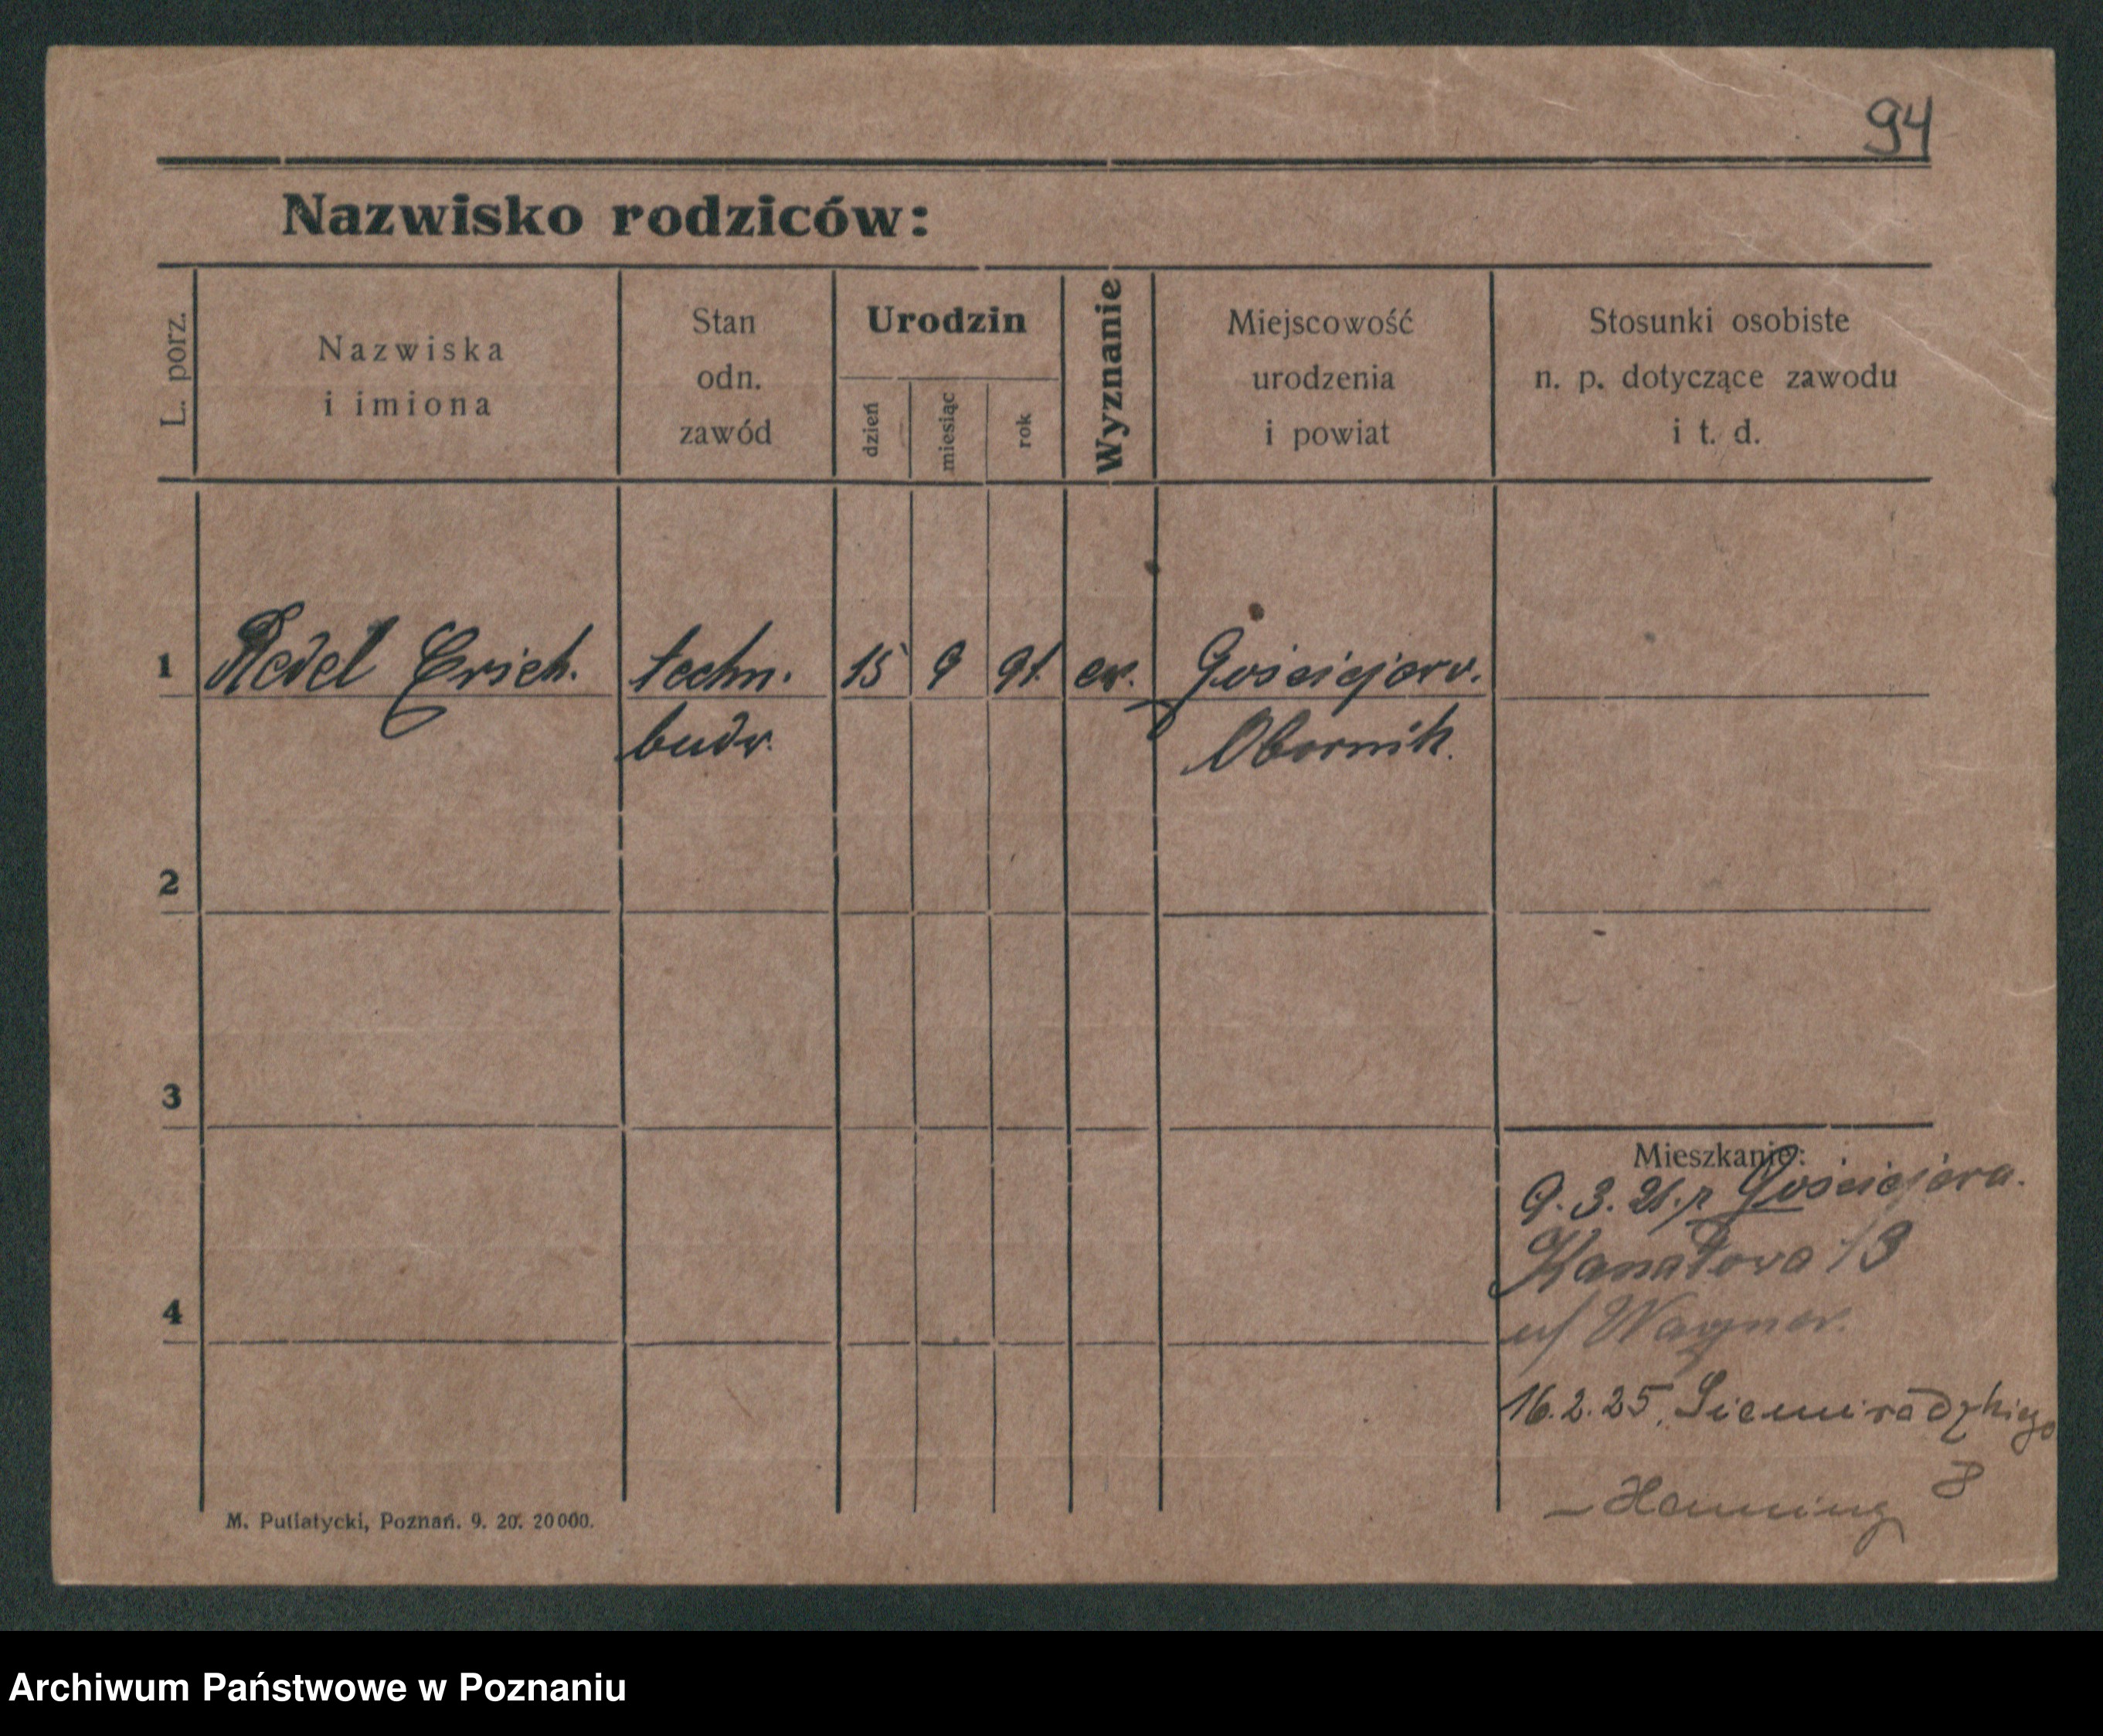 94
Nazwisko rodziców:
L. porz.
Nazwiska
i imiona
Stan
odn.
zawód
Urodzin
dzień
miesiąc
rok
Wyznanie
Miejscowość
urodzenia
i powiat
Stosunki osobiste
n. p. dotyczące zawodu
i t. d.
1 Redel Erich. techn. 15 9 91. ew. Gościejew.
budr. Obornik.
2
3
Mieszkanie:
9.3.21. z Gościejewa.
Kanałowa 13
4
u/ Wagner.
16.2.25. Siemiradzkiego
8
– Henning
M. Putiatycki, Poznań. 9. 20. 20000.
Archiwum Państwowe w Poznaniu